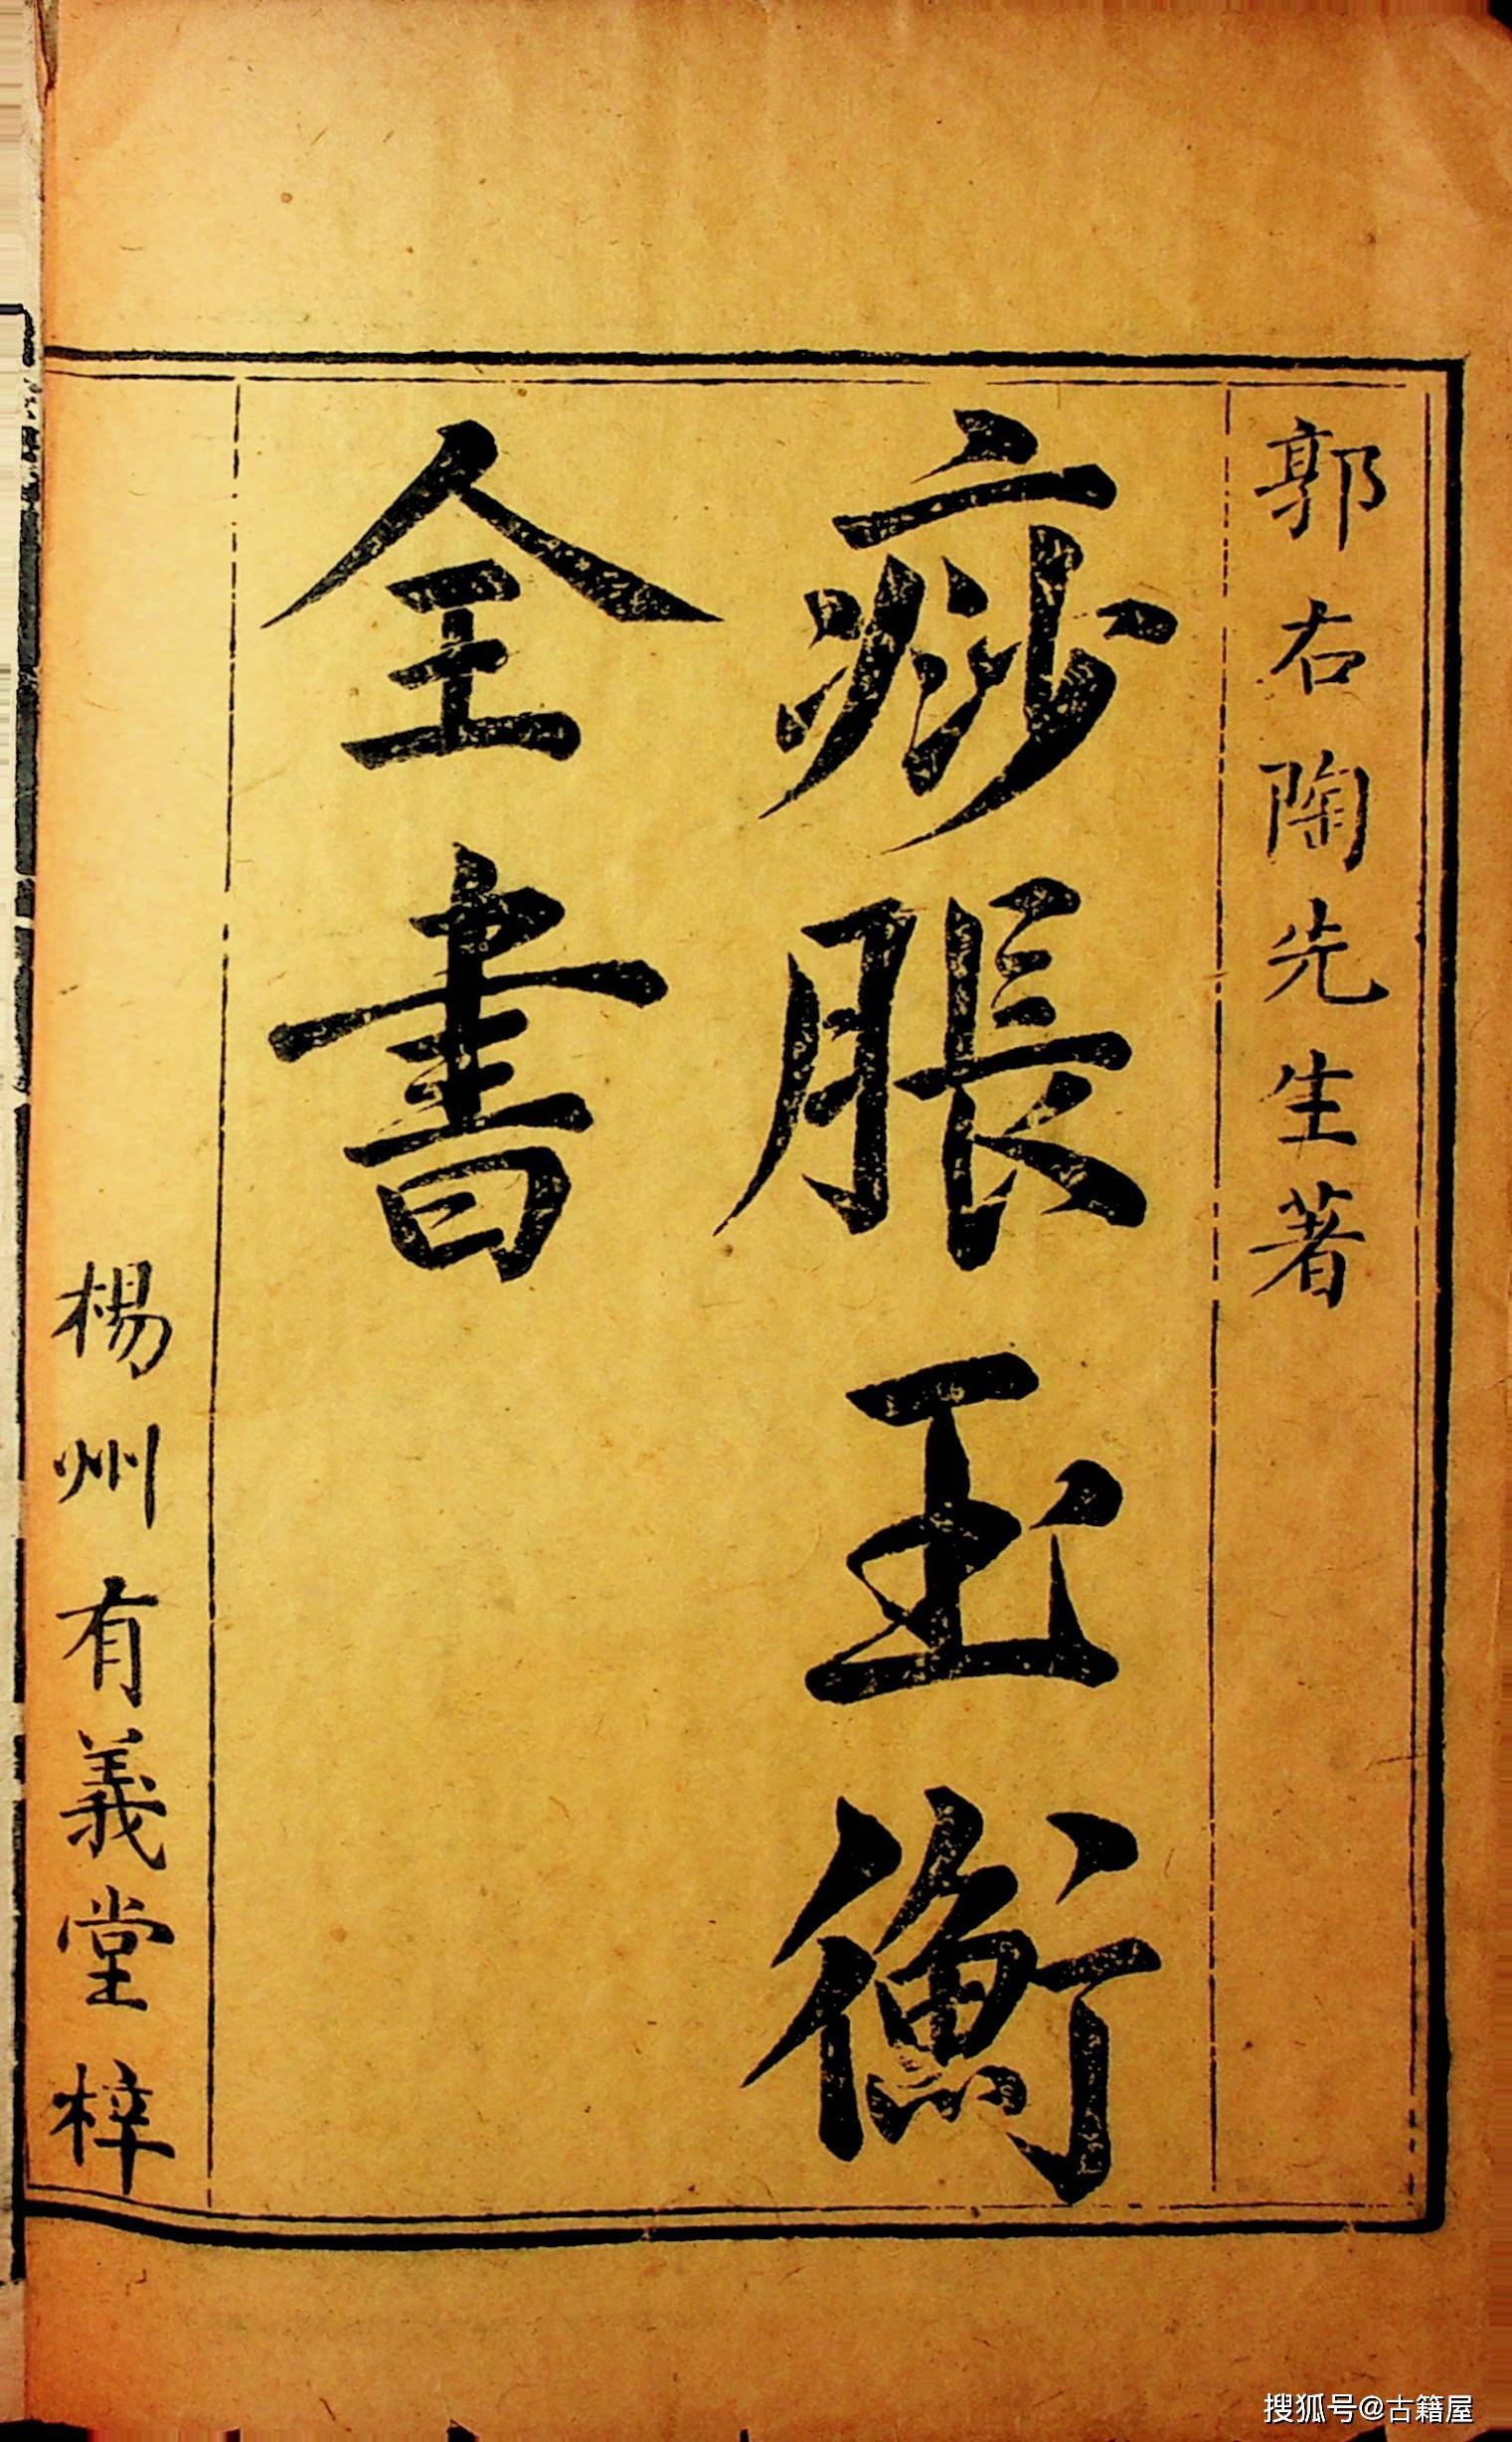 郭右陶先生著
痧脹玉衡
全書
楊州有義堂梓
搜狐号@古籍屋